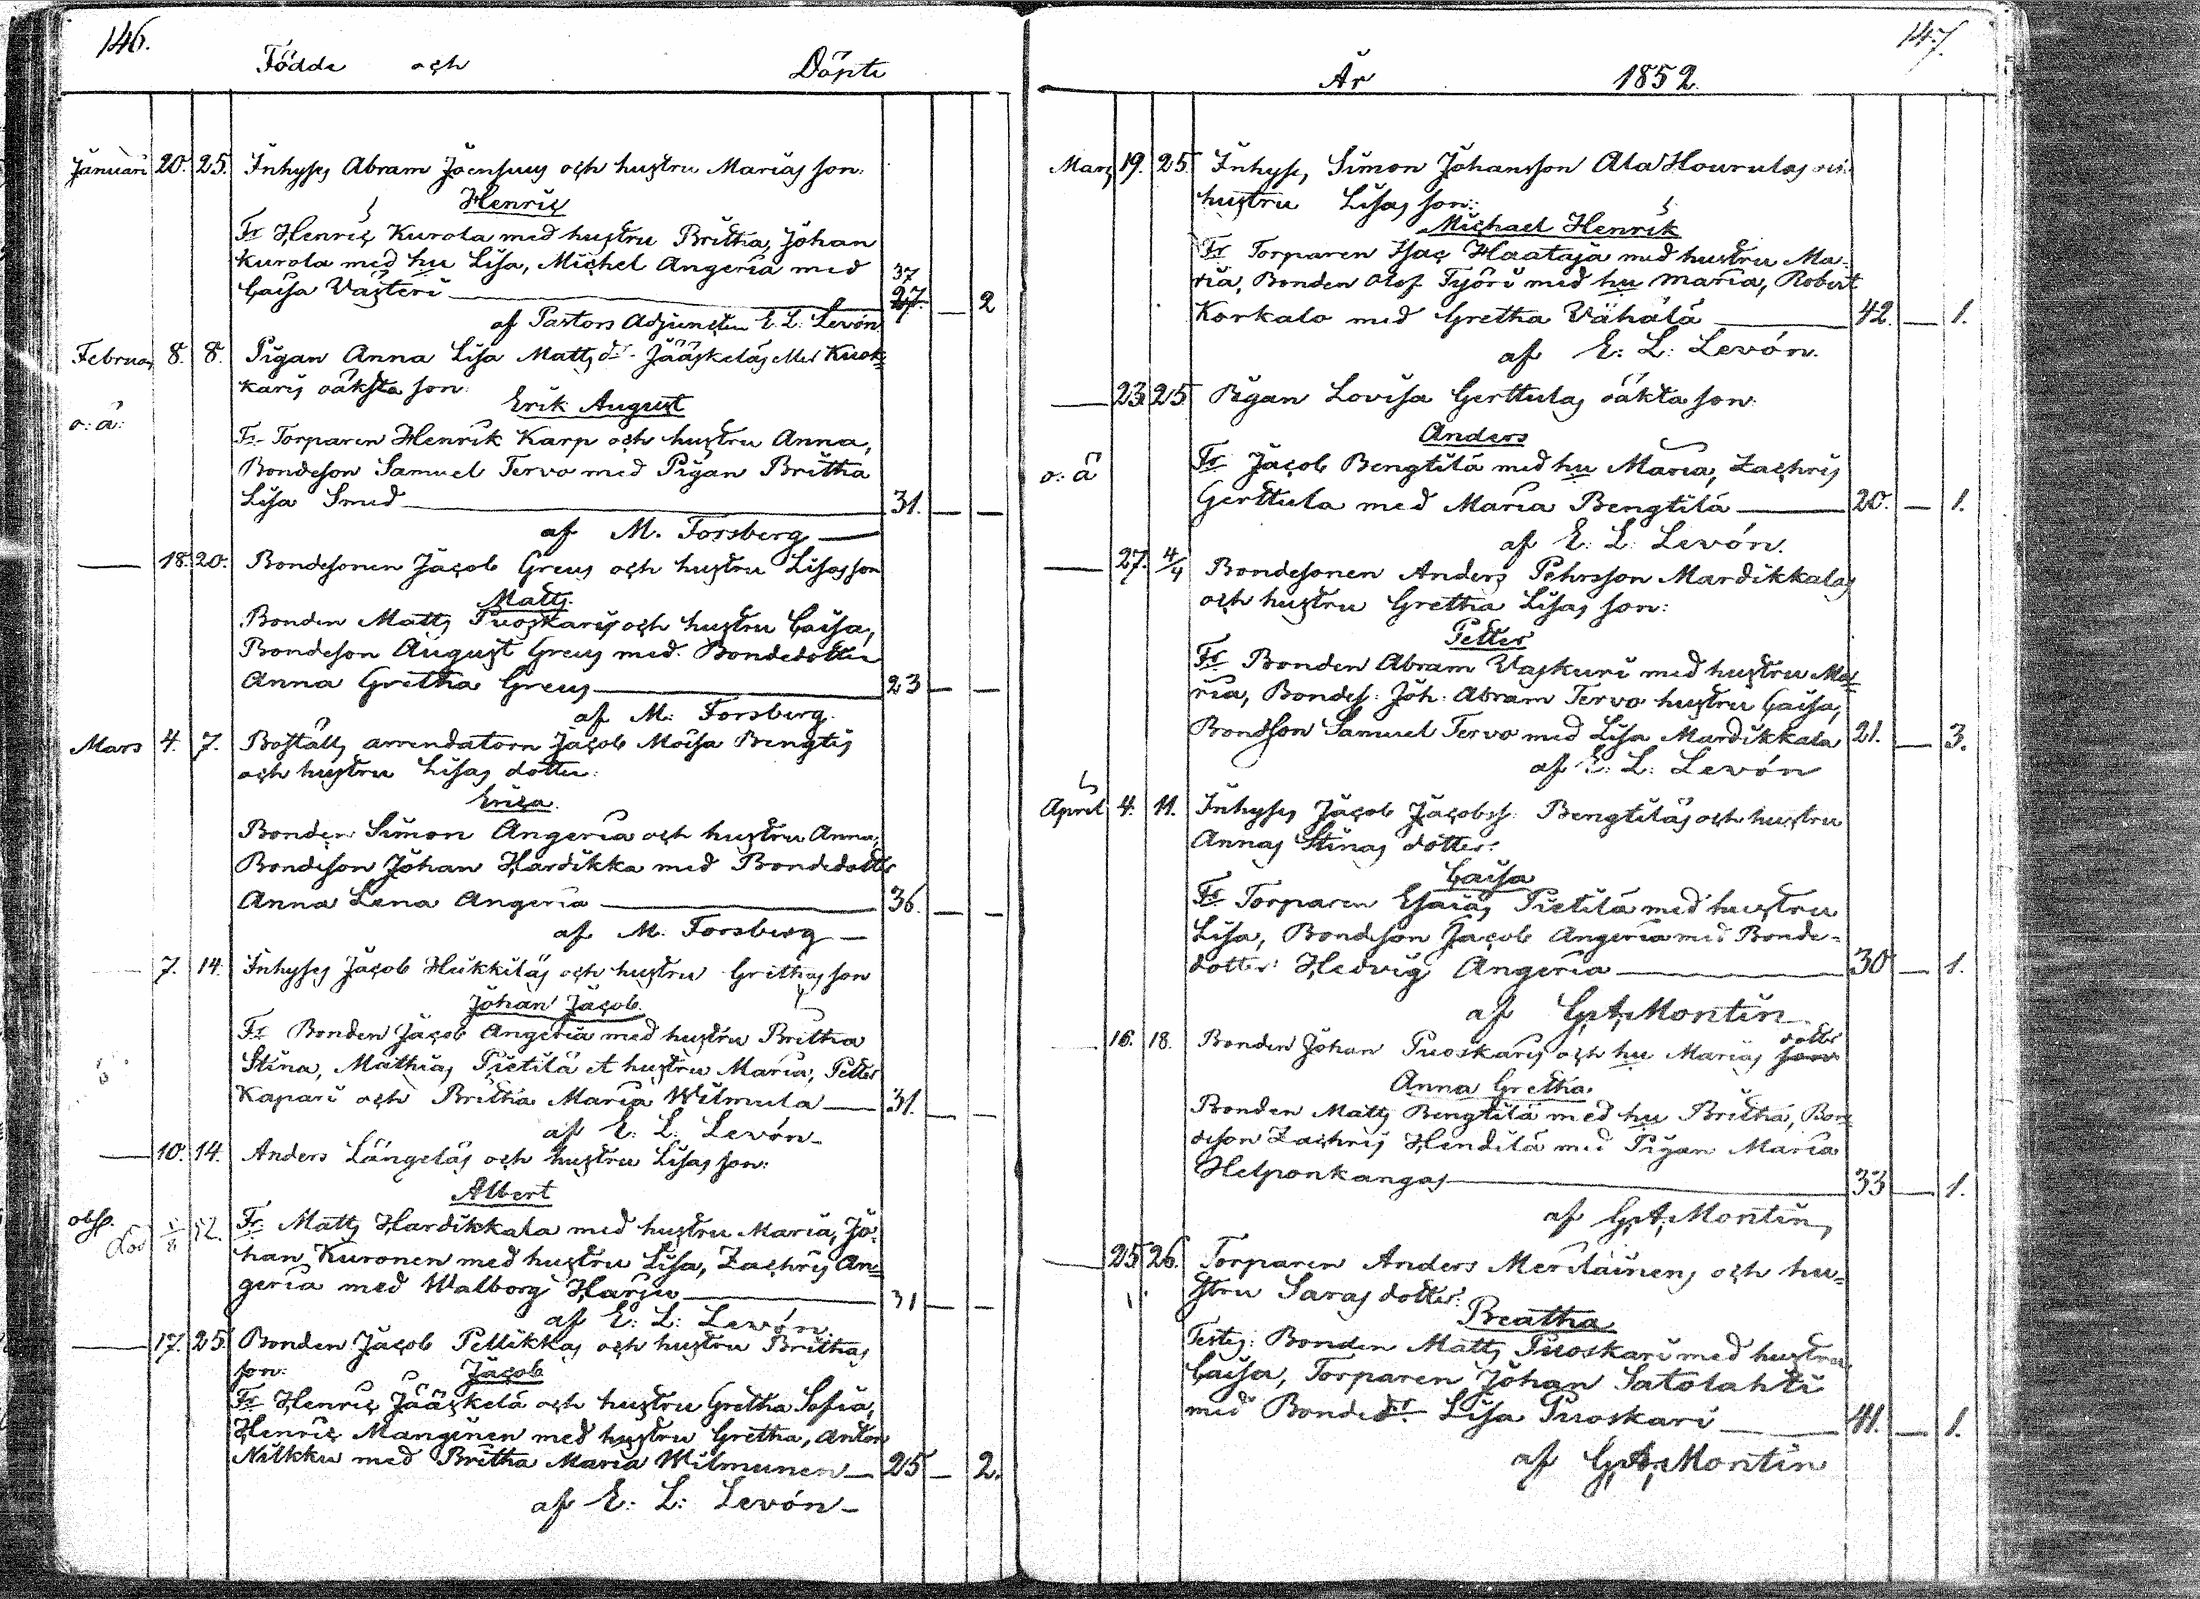 146.
Födde och Döpte
Januari 20. 25. Inhyses Abram Joensuus och hustru Marias son:
Henric
Fr Henric Kurola med hustru Britha, Johan
Kurola med hu Lisa, Michel Angeria med 37
Caisa Vasteri 27. 2
af Pastors Adjuncten E. L. Levón
Februar 8. 8. Pigan Anna Lisa Matts dr Jääskeläs eller Kuos-
karis oäkta son:
Erik August
o: ä:
Fr Torparen Henrik Karp och hustru Anna,
Bondeson Samuel Tervo med Pigan Britha
Lisa Smed 31. — —
af M. Forsberg
— 18. 20. Bondesonen Jacob Greus och hustru Lisas son
Matts.
Bonden Matts Puoskaris och hustru Caisa,
Bondeson August Greus med Bondedotter
Anna Gretha Greus 23 — —
af M. Forsberg.
Mars 4. 7. Boställs arrendatorn Jacob Moisa Bengtis
och hustru Lisas dotter:
Erica.
Bonden Simon Angeria och hustru Anna,
Bondeson Johan Hardikka med Bondedotter
Anna Lena Angeria 36. — —
af M. Forsberg —
— 7. 14. Inhyses Jacob Heikkiläs och hustru Grethas son
Johan Jacob.
Fr Bonden Jacob Angeria med hustru Britha
Stina, Mathias Pietilä et hustru Maria, Petter
Kapari och Britha Maria Wilmula 31. — —
af E: L: Levón
— 10. 14. Anders Längeläs och hustru Lisas son:
Albert
obsp. Död 52. Fr Matts Hardikkala med hustru Maria, Jo-
han Kuronen med hustru Lisa, Zachris An-
geria med Walborg Harju 31 — —
af E: L: Levón
— 17. 25. Bonden Jacob Pellikkas och hustru Brithas
son: Jacob
Fr Henric Jääskelä och hustru Gretha Sofia,
Henric Manginen med hustru Gretha, Anton
Nilkku med Britha Maria Wilmunen 25 — 2.
af E: L: Levón
147.
År 1852.
Mars 19. 25. Inhyses Simon Johansson AlaHourulas och
hustru Lisas son:
Michael Henrik
Fr Torparen Isac Haataja med hustru Ma-
ria, Bonden Olof Fyöri med hu Maria, Robert
Korkalo med Gretha Vähälä 42. — 1.
af E: L: Levón.
— 23. 25 Pigan Lovisa Gerttulas oäkta son:
Anders
o: ä
Fr Jacob Bengtilä med hu Maria, Zachris
Gerttula med Maria Bengtilä 20. — 1.
af E: L: Levón.
— 27. 4/4 Bondesonen Anders Pehrsson Mardikkalas
och hustru Gretha Lisas son:
Petter
Fr Bonden Abram Vaskuri med hustru Ma-
ria, Bondes: Joh: Abram Tervo hustru Caisa,
Bondson Samuel Tervo med Lisa Mardikkala 21. — 3.
af E: L: Levón
April 4. 11. Inhyses Jacob Jacobss: Bengtiläs och hustru
Annas Stinas dotter:
Caisa
Fr Torparen Esaias Pietilä med hustru
Lisa, Bondeson Jacob Angeria med Bonde-
dotter: Hedvig Angeria 30 — 1.
af G. A. Montin
— 16. 18. Bonden Johan Puoskaris och hu Marias son dotter
Anna Gretha.
Bonden Matts Bengtilä med hu Britha, Bon-
deson Zachris Hendilä med Pigan Maria
Helponkangas 33 — 1.
af G. A. Montin,
— 25 26. Torparen Anders Meriläinens och hu-
stru Saras dotter:
Breatha
Testes: Bonden Matts Puoskari med hustru
Caisa, Torparen Johan Satolahti
med Bonded:r Lisa Puoskari 41. — 1.
af G. A. Montin